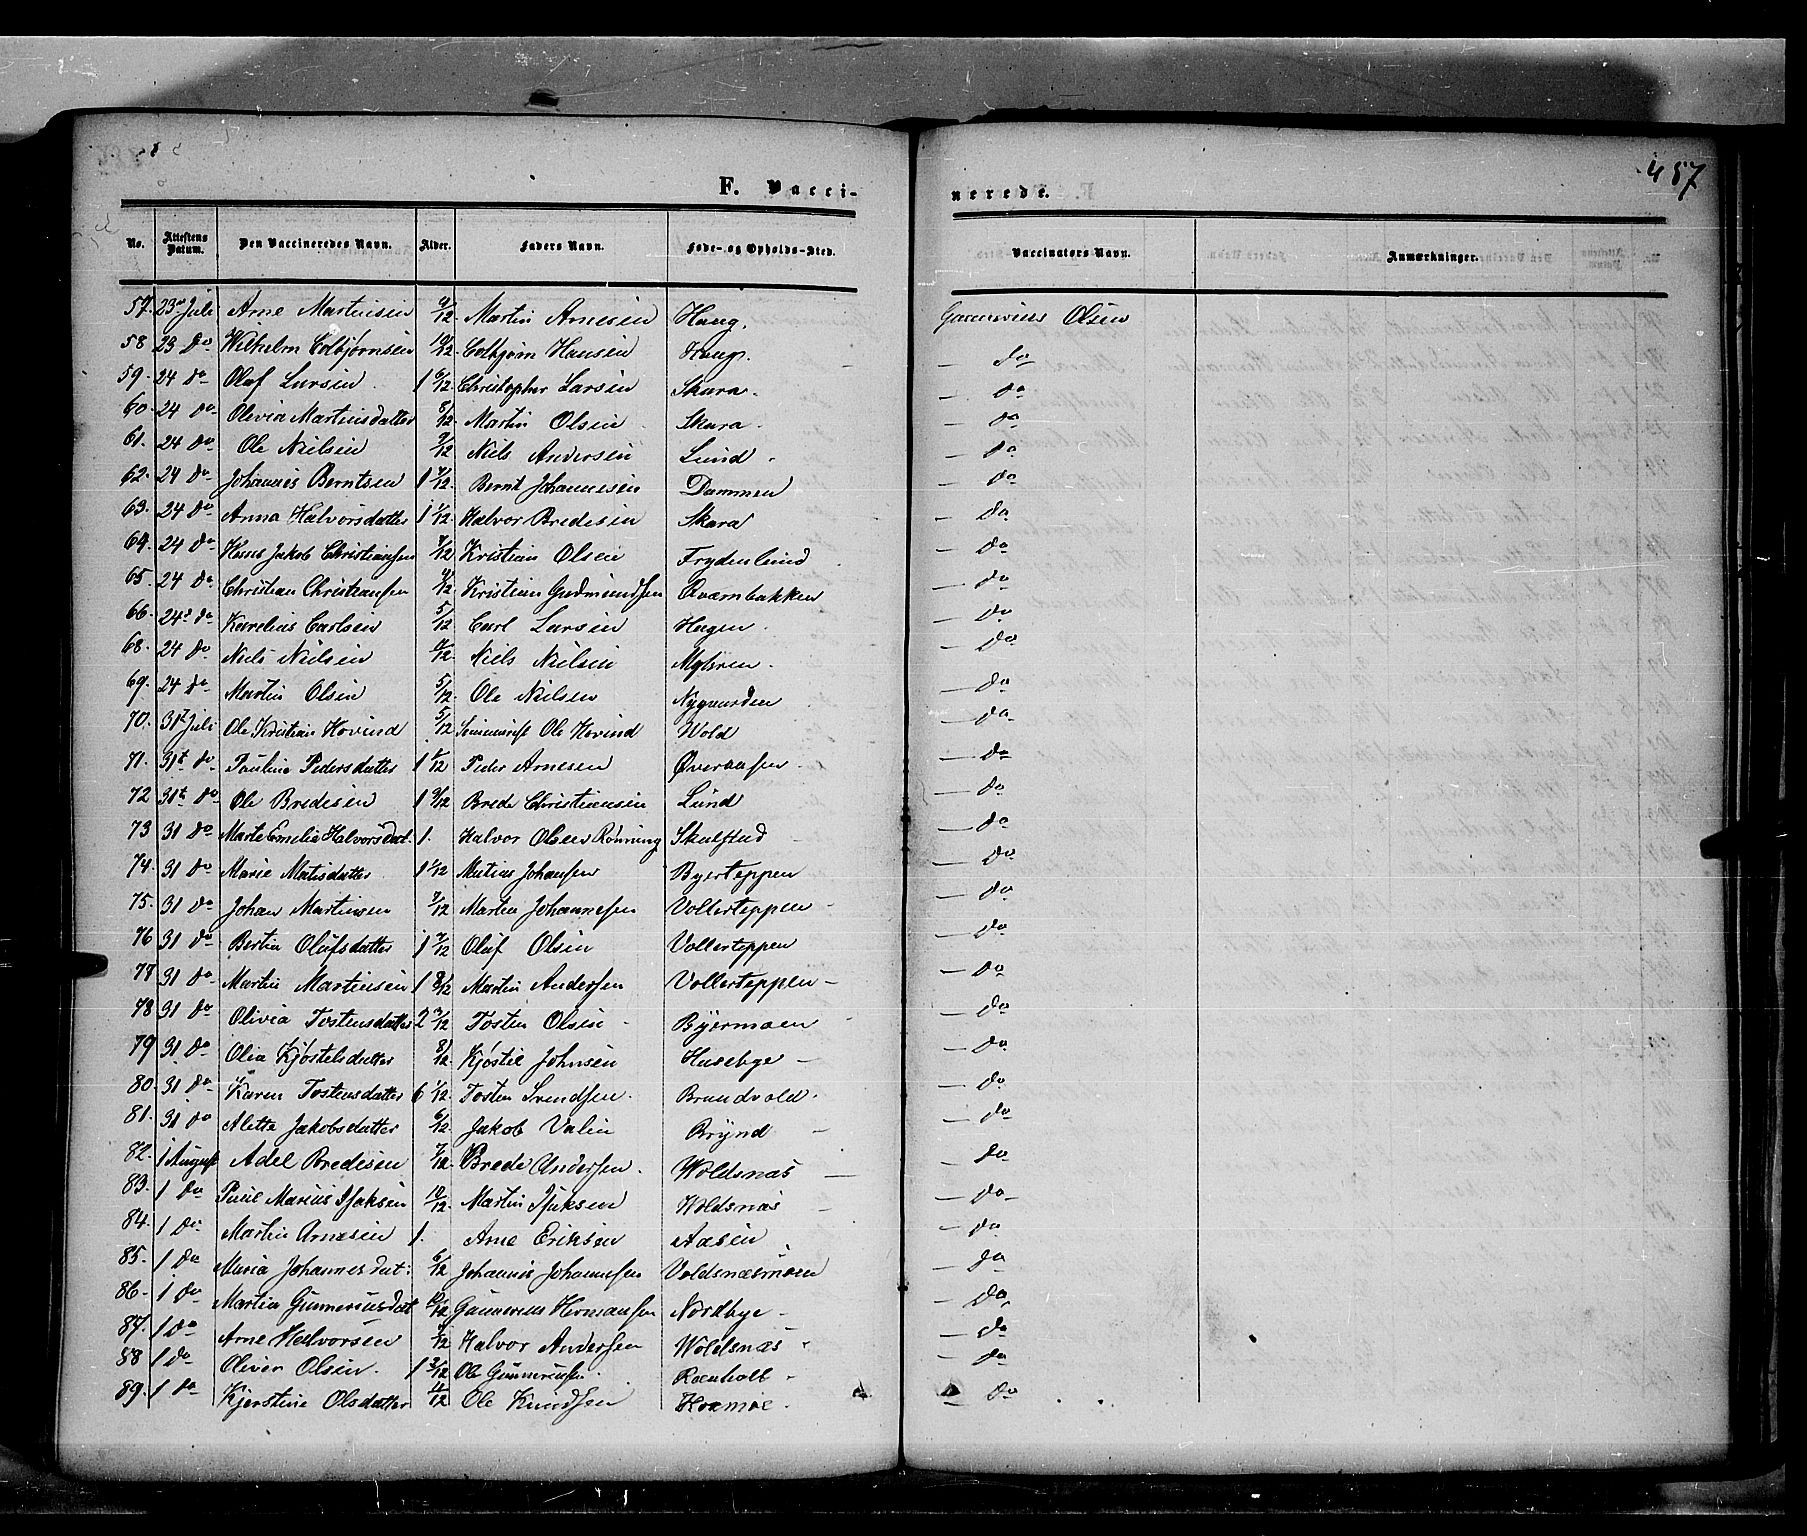 457
F. Vacci-
nerede.
No. Attestens Datum. Den Vaccineredes Navn. Alder. Faders Navn. Føde- og Opholds-Sted. Vaccinators Navn. Anmærkninger.
57. 23 Juli Arne Martinsen 9/12 Martin Arnesen Haug. Olsen
58 23 do Wilhelm Colbjørnsen 10/12 Colbjørn Hansen do
59. 24 do Olaf Larsen 1 6/12 Christopher Larsen Skara. do
60. 24 do Olivia Martinsdatter 8/12 Martin Olsen Skara. do
61. 24 do Ole Nielsen 9/12 Niels Andersen Lund do
62. 24 do Johannes Berntsen 1 Bernt Johannesen Dammen do
63. 24 do Anna Halvorsdatter 1 1/12 Halvor Bredesen Skara do
64. 24 do Hans Jakob Christiansen 7/12 Kristian Olsen Frydenlund do
65. 24 do Christian Christiansen Kristian Gudmundsen Qværnbakken do
66. 24 do Karelius Carlsen 5/12 Carl Larsen Hagen. do
68. 24 do Niels Nielsen Niels Nielsen Myhren. do
69. 24 do Martin Olsen 5/12 Ole Nielsen Nygaarden do
70. 31 Juli Ole Kristian Hovind 5/12 Ole Hovind Wold do
71. 31t do Pauline Pedersdatter 1 Peder Arnesen Øveraasen do
72 31t do Ole Bredesen 1 9/12 Brede Christiansen Lund do
73 31 do Marte Emelie Halvorsdat. 1. Halvor Olsen Rønning Skulstad do
74. 31 do Marie Matisdatter 1 1/12 Matias Johansen Byerteppen do
75. 31 do Johan Martinsen 7/12 Martin Johannesen Vollerteppen do
76 31 do Bertia Olafsdatter 1 7/12 Olaf Olsen Vollerteppen do
78 31 do Martin Martinsen 1 8/12 Martin Andersen Vollerteppen do
78. 31 do Olivia Tostensdatter 2 Tosten Olsen Byermoen do
79 31 do Olia Kjøstelsdatter 8/12 Kjøstel Johnsen Husebye do
80. 31 do Karen Tostensdatter 6 1/12. Tosten Svendsen. Brandvold. do
81. 31 do Alette Jakobsdatter 6/12 Jakob Valin Brynd do
82. 1 August Adel Bredesen 7/12 Brede Andersen. Woldsnæs do
83. 1 do Paul Marius Isaksen 10/12 Martin Isaksen Woldsnæs do
84. 1 do Martin Arnesen 1. Arne Eriksen Aasen do
85. 1 do Maria Johannesdat: 6/12 Johannes Johannesen Voldsnæsmoen do
86. 1 do Martia Gunneriusdat 10/12 Gunnerius Hermansen Nordbye do
87. 1 do Arne Halvorsen Halvor Andersen Woldsnæs do
88 1 do Oliver Olsen. 1 3/12 Ole Gunneriusen. Raaholt do
89. 1 do Kjerstine Olsdatter Ole Knudsen Hoxmoe. do